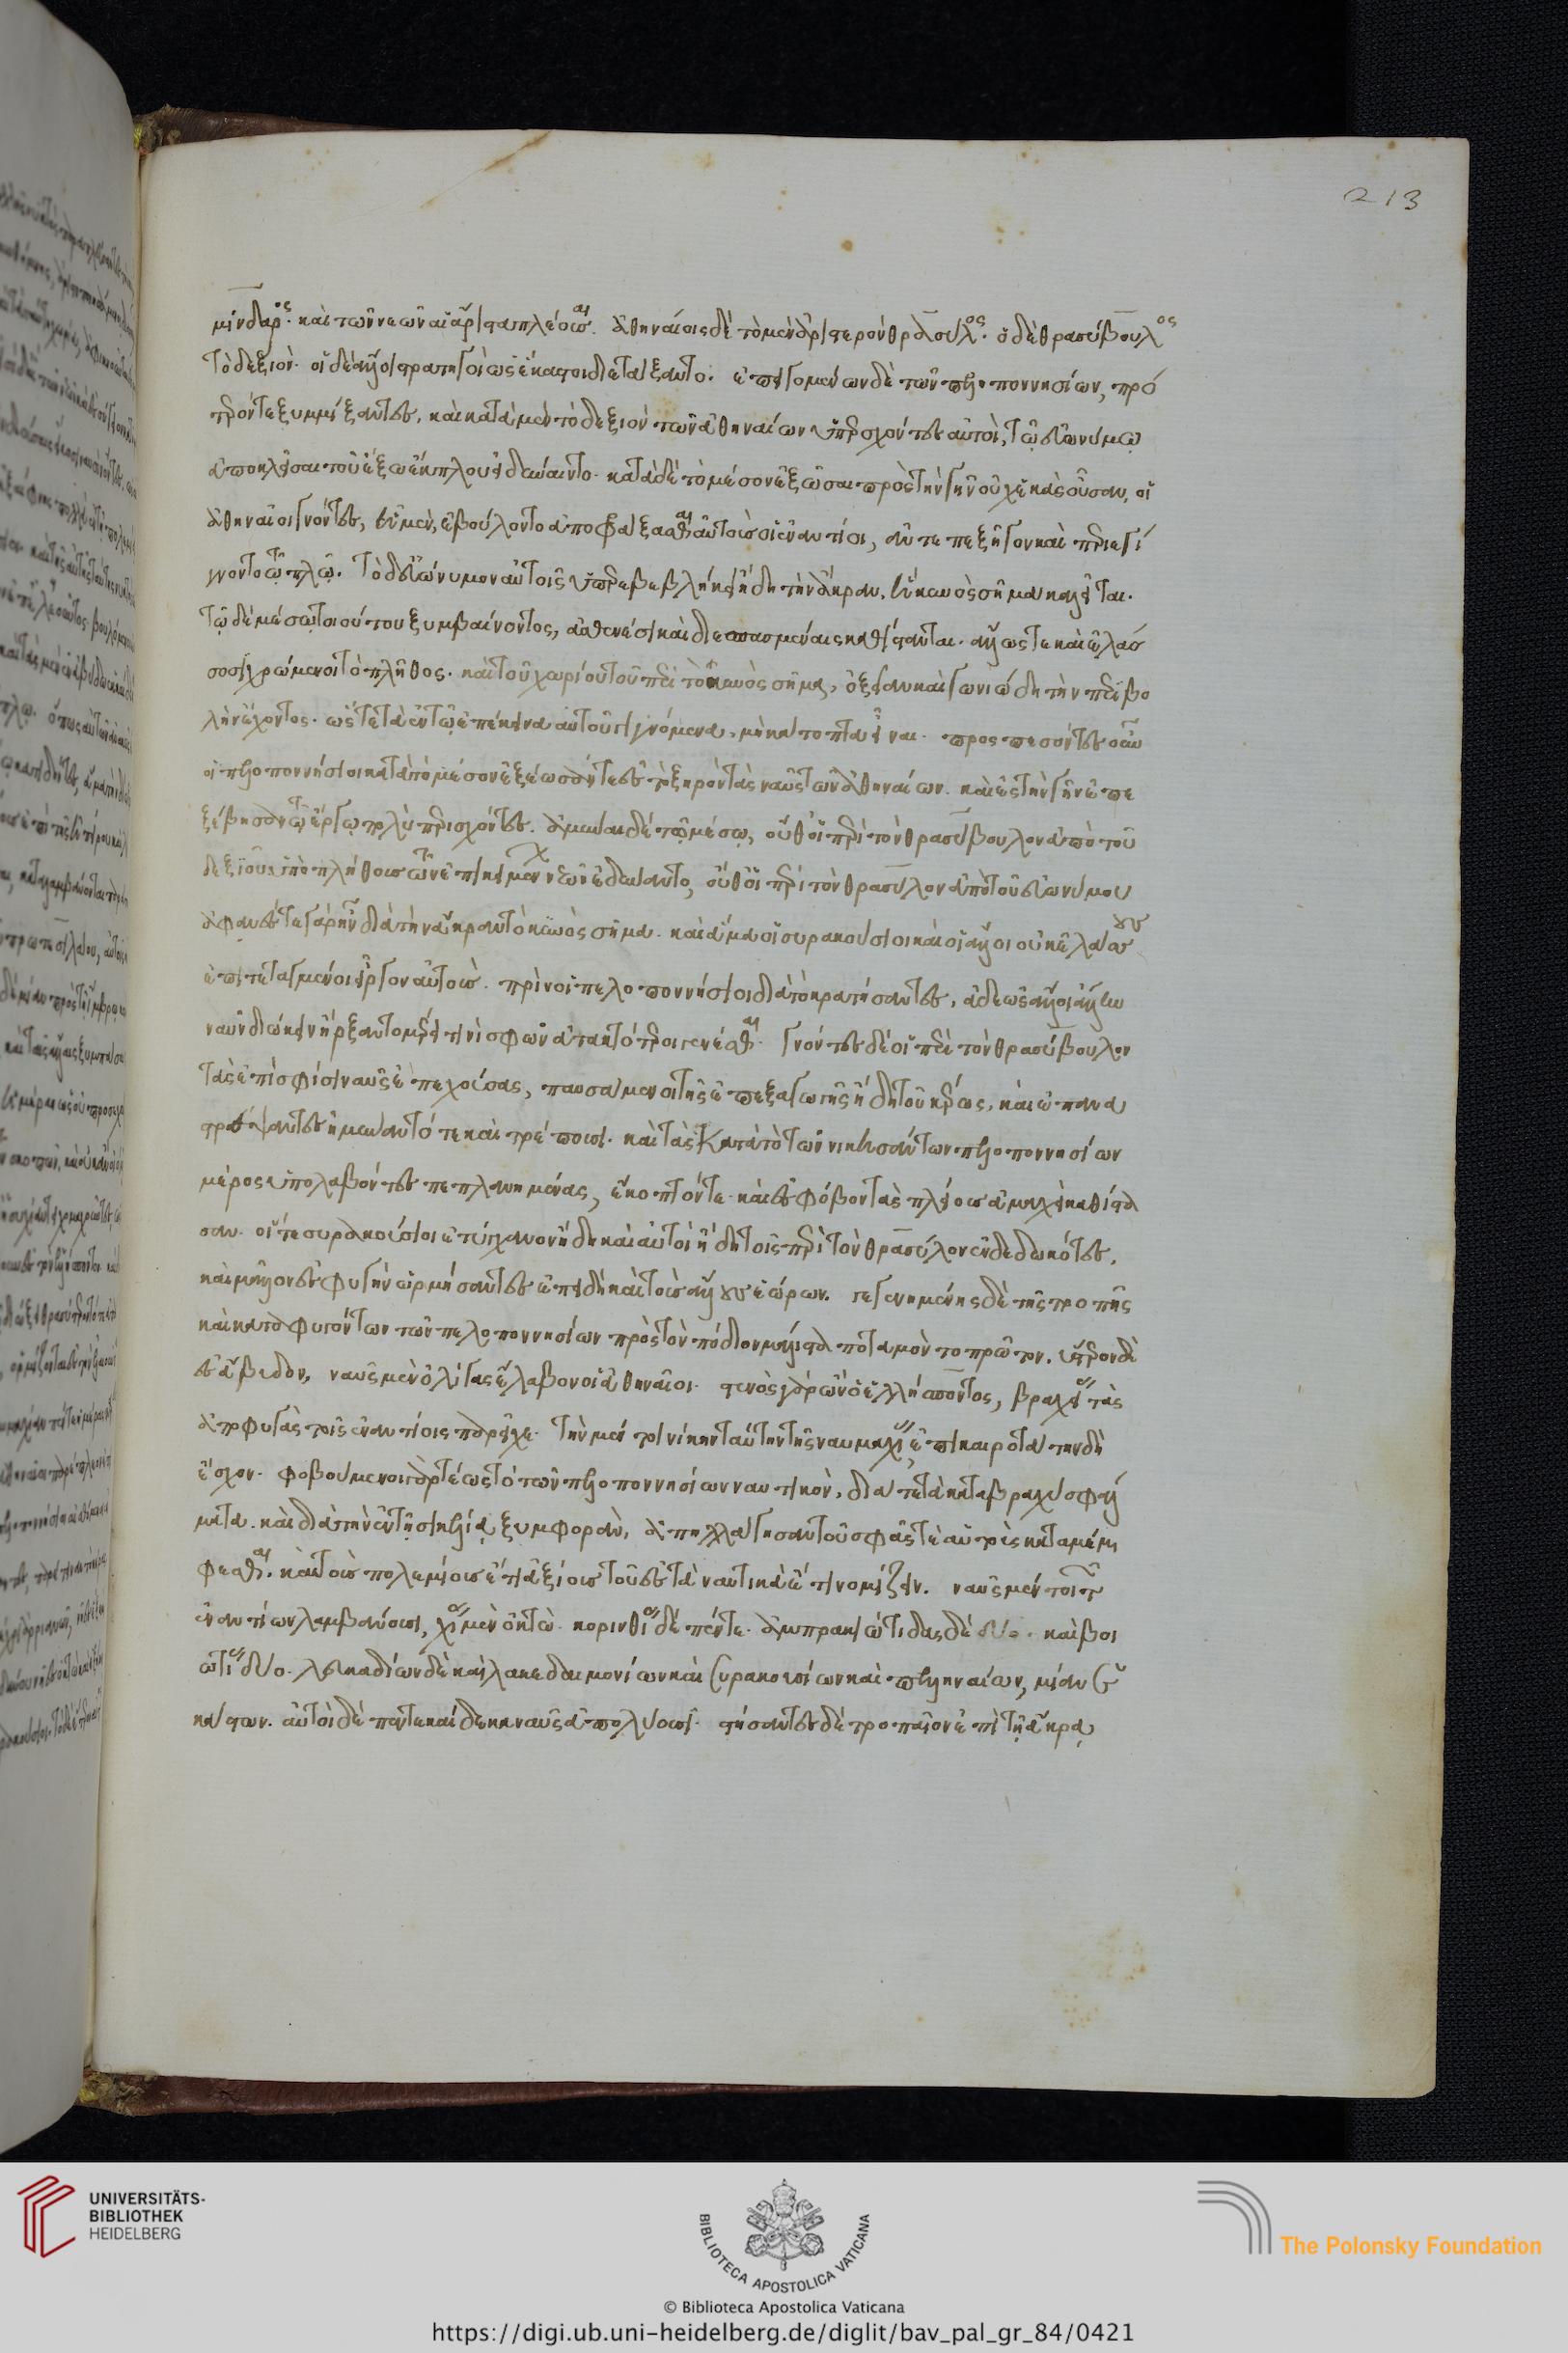 μίνδαρος· καὶ τῶν νεῶν αἳ ἄριστα πλέουσαι. ἀθηναίοις δὲ τὸ μὲν ἀριστερὸν θράσυλος· ὁ δὲ θρασύβουλος
τὸ δεξιόν· οἱ δὲ ἄλλοι στρατηγοὶ ὡς ἕκαστοι διετάξαντο. ἐπειγομένων δὲ τῶν πελοποννησίων, πρό
τερόν τε ξυμμίξαντες, καὶ κατὰ μὲν τὸ δεξιὸν τῶν ἀθηναίων ὑπερσχόντες αὐτοὶ, τῷ εὐωνύμῳ
ἀποκλεῖσαι τοῦ ἔξω ἔκπλου εἰ δύναιντο· κατὰ δὲ τὸ μέσον ἐξῶσαι πρὸς τὴν γῆν οὐχ ἑκὰς οὖσαν, οἱ
ἀθηναῖοι γνόντες, ᾗ μὲν, ἐβούλοντο ἀποφράξασθαι αὐτοὺς οἱ ἐναντίοι, ἀντεπεξῆγον καὶ περιεγί
γνοντο τῷ πλῷ. τὸ δ' εὐώνυμον αὐτοῖς ὑπερεβεβλήκει ἤδη τὴν ἄκραν, ἣ κυνὸς σῆμα καλεῖται.
τῷ δὲ μέσῳ τοιούτου ξυμβαίνοντος, ἀσθενέσι καὶ διεσπασμέναις καθίσταντο. ἄλλως τε καὶ ἐλάσ
σοσι χρώμενοι τὸ πλῆθος. καὶ τοῦ χωρίου τοῦ περὶ τὸ κυνὸς σῆμα, ὀξεῖαν καὶ γωνιώδη τὴν περιβο
λὴν ἔχοντος. ὥστε τὰ ἐν τῷ ἐπέκεινα αὐτοῦ γιγνόμενα, μὴ κατοπτα εἶναι. προσπεσόντες οὖν
οἱ πελοποννήσιοι κατὰ τὸ μέσον ἐξέωσάν τε ἐς τὸ ξηρὸν τὰς ναῦς τῶν ἀθηναίων. καὶ ἐς τὴν γῆν ἐπε
ξέβησαν τῷ ἔργῳ πολὺ περισχόντες. ἀμῦναι δὲ τῷ μέσῳ, οὔθ' οἱ περὶ τὸν θρασύβουλον ἀπὸ τοῦ
δεξιοῦ ὑπὸ πλήθους τῶν ἐπικειμένων νεῶν ἐδύναντο, οὔθ' οἱ περὶ τὸν θράσυλον ἀπὸ τοῦ εὐωνύμου
ἀφανές τε γὰρ ἦν διὰ τὴν ἄκραν τὸ κυνὸς σῆμα. καὶ ἅμα οἱ συρακούσιοι καὶ οἱ ἄλλοι οὐκ ἐλάσσους
ἐπιτεταγμένοι εἶργον αὐτοὺς. πρὶν οἱ πελοποννήσιοι διὰ τὸ κρατήσαντες, ἀδεῶς ἄλλοι ἄλλην
ναῦν διώκειν ἤρξαντο μέρει τινὶ σφῶν ἀτακτότεροι γενέσθαι. γνόντες δὲ οἱ περὶ τὸν θρασύβουλον
τὰς ἐπὶ σφίσι ναῦς ἐπεχούσας, παυσάμενοι τῆς ἐπεξαγωγῆς ἤδη τοῦ κέρως, καὶ ἐπανα
στρέψαντες ἠμύναντό τε καὶ τρέπουσι. καὶ τὰς κατὰ τὸ τῶν νικησάντων πελοποννησίων
μέρος ὑπολαβόντες πεπλανημένας, ἔκοπτόν τε· καὶ ἐς φόβον τὰς πλείους ἀμαχεὶ καθίστα
σαν. οἵ τε συρακούσιοι ἐτύγχανον ἤδη καὶ αὐτοὶ ἤδη τοῖς περὶ τὸν θράσυλον ἐνδεδωκότες.
καὶ μᾶλλον ἐς φυγὴν ὁρμήσαντες ἐπειδὴ καὶ τοὺς ἄλλους ἑώρων. γεγενημένης δὲ τῆς τροπῆς
καὶ καταφυγόντων τῶν πελοποννησίων πρὸς τὸν πόδιον μάλιστα ποταμὸν τοπρῶτον. ὕστερον δὲ
ἐς ἄβυδον, ναῦς μὲν ὀλίγας ἔλαβον οἱ ἀθηναῖοι. στενὸς γὰρ ὢν ὁ ἑλλήσποντος, βραχείας τὰς
ἀποφυγὰς τοῖς ἐναντίοις παρεῖχε. τὴν μέν τοι νίκην ταύτην τῆς ναυμαχίας, ἐπικαιροτάτην δὴ
ἔσχον. φοβούμενοι γὰρ τέως τὸ τῶν πελοποννησίων ναυτικὸν, διά τε τὰ κατὰ βραχὺ σφάλ
ματα. καὶ διὰ τὴν ἐν τῇ σικελίᾳ ξυμφορὰν, ἀπηλλάγησαν τοῦ σφᾶς τε αὐτοὺς καταμέμ
φεσθαι. καὶ τοὺς πολεμίους ἔτι ἀξίους τοῦ ἐς τὰ ναυτικὰ ἔτι νομίζειν. ναῦς μέν τοι τῶν
ἐναντίων λαμβάνουσι, χίας μὲν ὀκτὼ. κορινθίας δὲ πέντε. ἀμπρακιώτιδας δὲ δύο. καὶ βοι
ωτίας δύο. λευκαδίων δὲ καὶ λακεδαιμονίων καὶ συρακουσίων καὶ πελληναίων, μίαν ἑ
κάστων. αὐτοὶ δὲ πεντεκαίδεκα ναῦς ἀπολύουσι. στήσαντες δὲ τροπαῖον ἐπὶ τῇ ἄκρᾳ
213
UNIVERSITÄTS-
BIBLIOTHEK
HEIDELBERG
BIBLIOTECA APOSTOLICA VATICANA
The Polonsky Foundation
© Biblioteca Apostolica Vaticana
https://digi.ub.uni-heidelberg.de/diglit/bav_pal_gr_84/0421